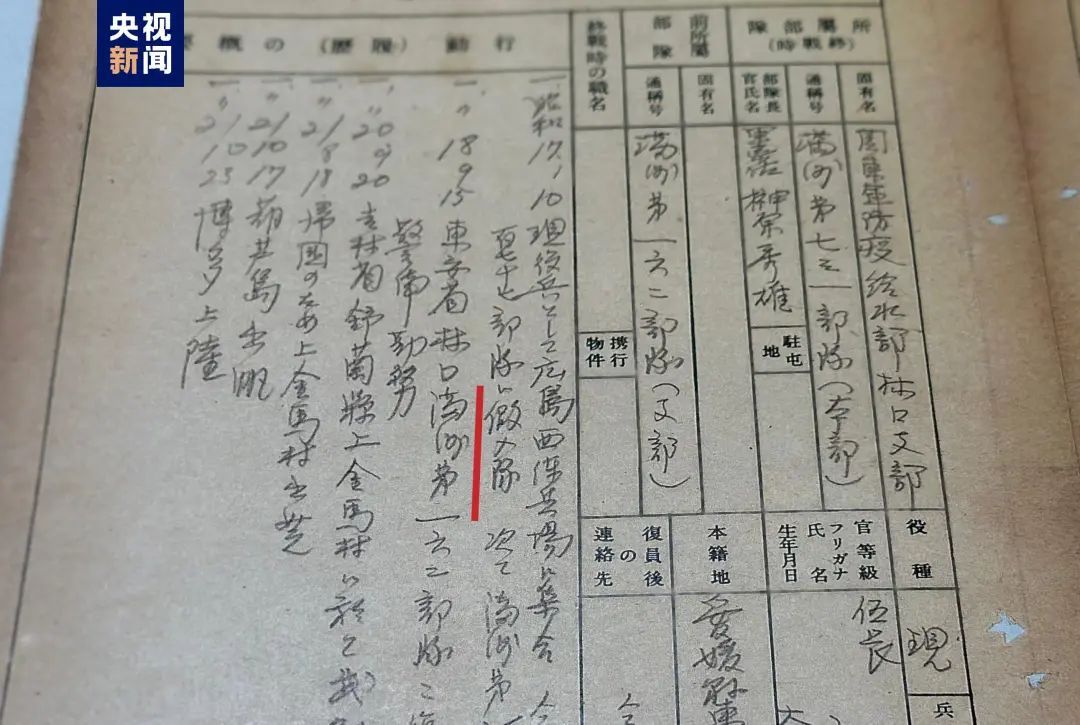 央视
新闻
所屬部隊
(終戰時)
固有名
関東軍防疫給水部林口支部
通稱号
満洲第七三一部隊(本部)
部隊長
官氏名
榊原秀雄
駐屯
地
前所屬
部隊
固有名
通稱号
満洲第一六二部隊(支部)
終戰時の職名
携行
物件
役種
現
兵
官等級
伍長
フリガナ
氏名
生年月日
本籍地
愛媛縣
復員後
の
連絡先
行動(履歴)の概要
一、昭和17、10 現役兵として広島西練兵場に集合
部隊に仮入隊 次で満洲第
一、〃 18 9 15 東安省林口満洲第一六二部隊に
警備勤務
一、〃 20 9 20 吉林省舒蘭縣上金馬村に於て
一、〃 21 8 18 帰国のため上金馬村出発
一、〃 21 10 17 葫芦島出帆
一、〃 21 10 23 博多上陸